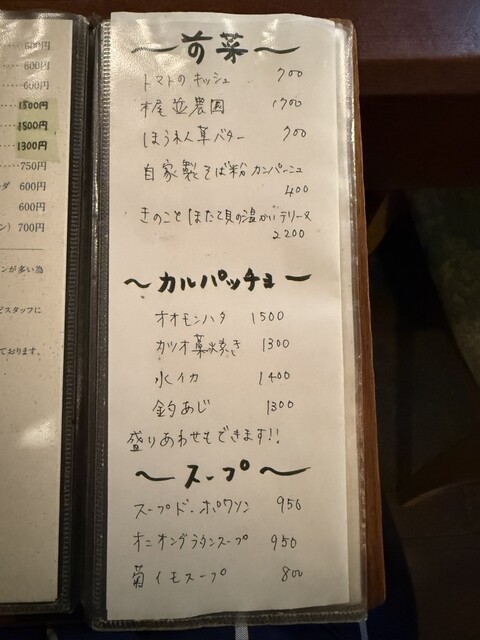 600円
600円
600円
1500円
1500円
1300円
750円
ダ 600円
600円
ン) 700円
ンが多い為
スタッフに
ております。
～前菜～
トマトのキッシュ 700
ほうれん草バター 700
自家製そば粉カンパーニュ
400
きのことほたて貝の温かいテリーヌ
2200
～カルパッチョ～
オオモンハタ 1500
カツオ藁焼き 1300
水イカ 1400
釣あじ 1300
盛りあわせもできます!!
～スープ～
スープド・ポワソン 950
オニオングラタンスープ 950
菊イモスープ 800